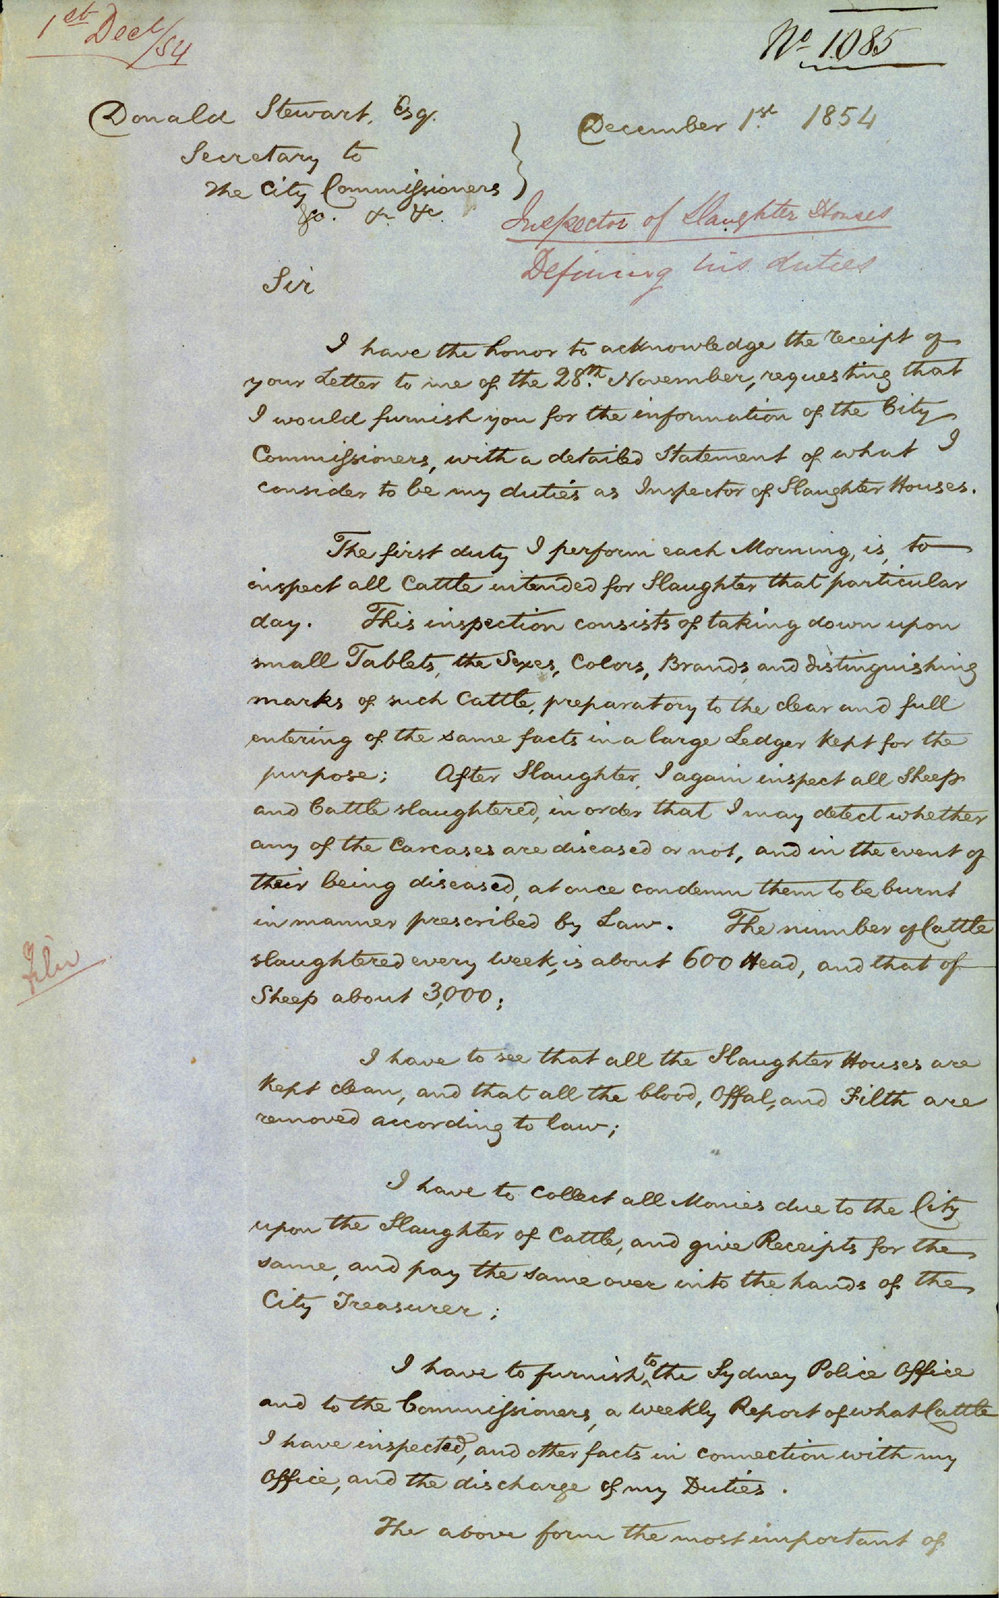 1st Decr/54
No 1085
Donald Stewart, Esq.
Secretary to
The City Commissioners
&c. &c. &c.
December 1st. 1854
Inspector of Slaughter Houses
Defining his duties
Sir
I have the honor to acknowledge the receipt of
your Letter to me of the 28th. November, requesting that
I would furnish you for the information of the City
Commissioners, with a detailed Statement of what I
consider to be my duties as Inspector of Slaughter Houses.
The first duty I perform each Morning, is, to
inspect all Cattle intended for Slaughter that particular
day. This inspection consists of taking down upon
small Tablets, the Sexes, Colors, Brands, and distinguishing
marks of such Cattle, preparatory to the clear and full
entering of the same facts in a large Ledger kept for the
purpose; After Slaughter, I again inspect all Sheep
and Cattle slaughtered, in order that I may detect whether
any of the Carcases are diseased or not, and in the event of
their being diseased, at once condemn them to be burnt
in manner prescribed by Law. The number of Cattle
slaughtered every week, is about 600 Head, and that of
Sheep about 3,000;
I have to see that all the Slaughter Houses are
kept clean, and that all the blood, Offal, and Filth are
removed according to law;
I have to collect all Monies due to the City
upon the Slaughter of Cattle, and give Receipts for the
same, and pay the same over into the hands of the
City Treasurer;
I have to furnish to the Sydney Police Office
and to the Commissioners, a weekly Report of what Cattle
I have inspected, and other facts in connection with my
Office, and the discharge of my Duties.
The above form the most important of